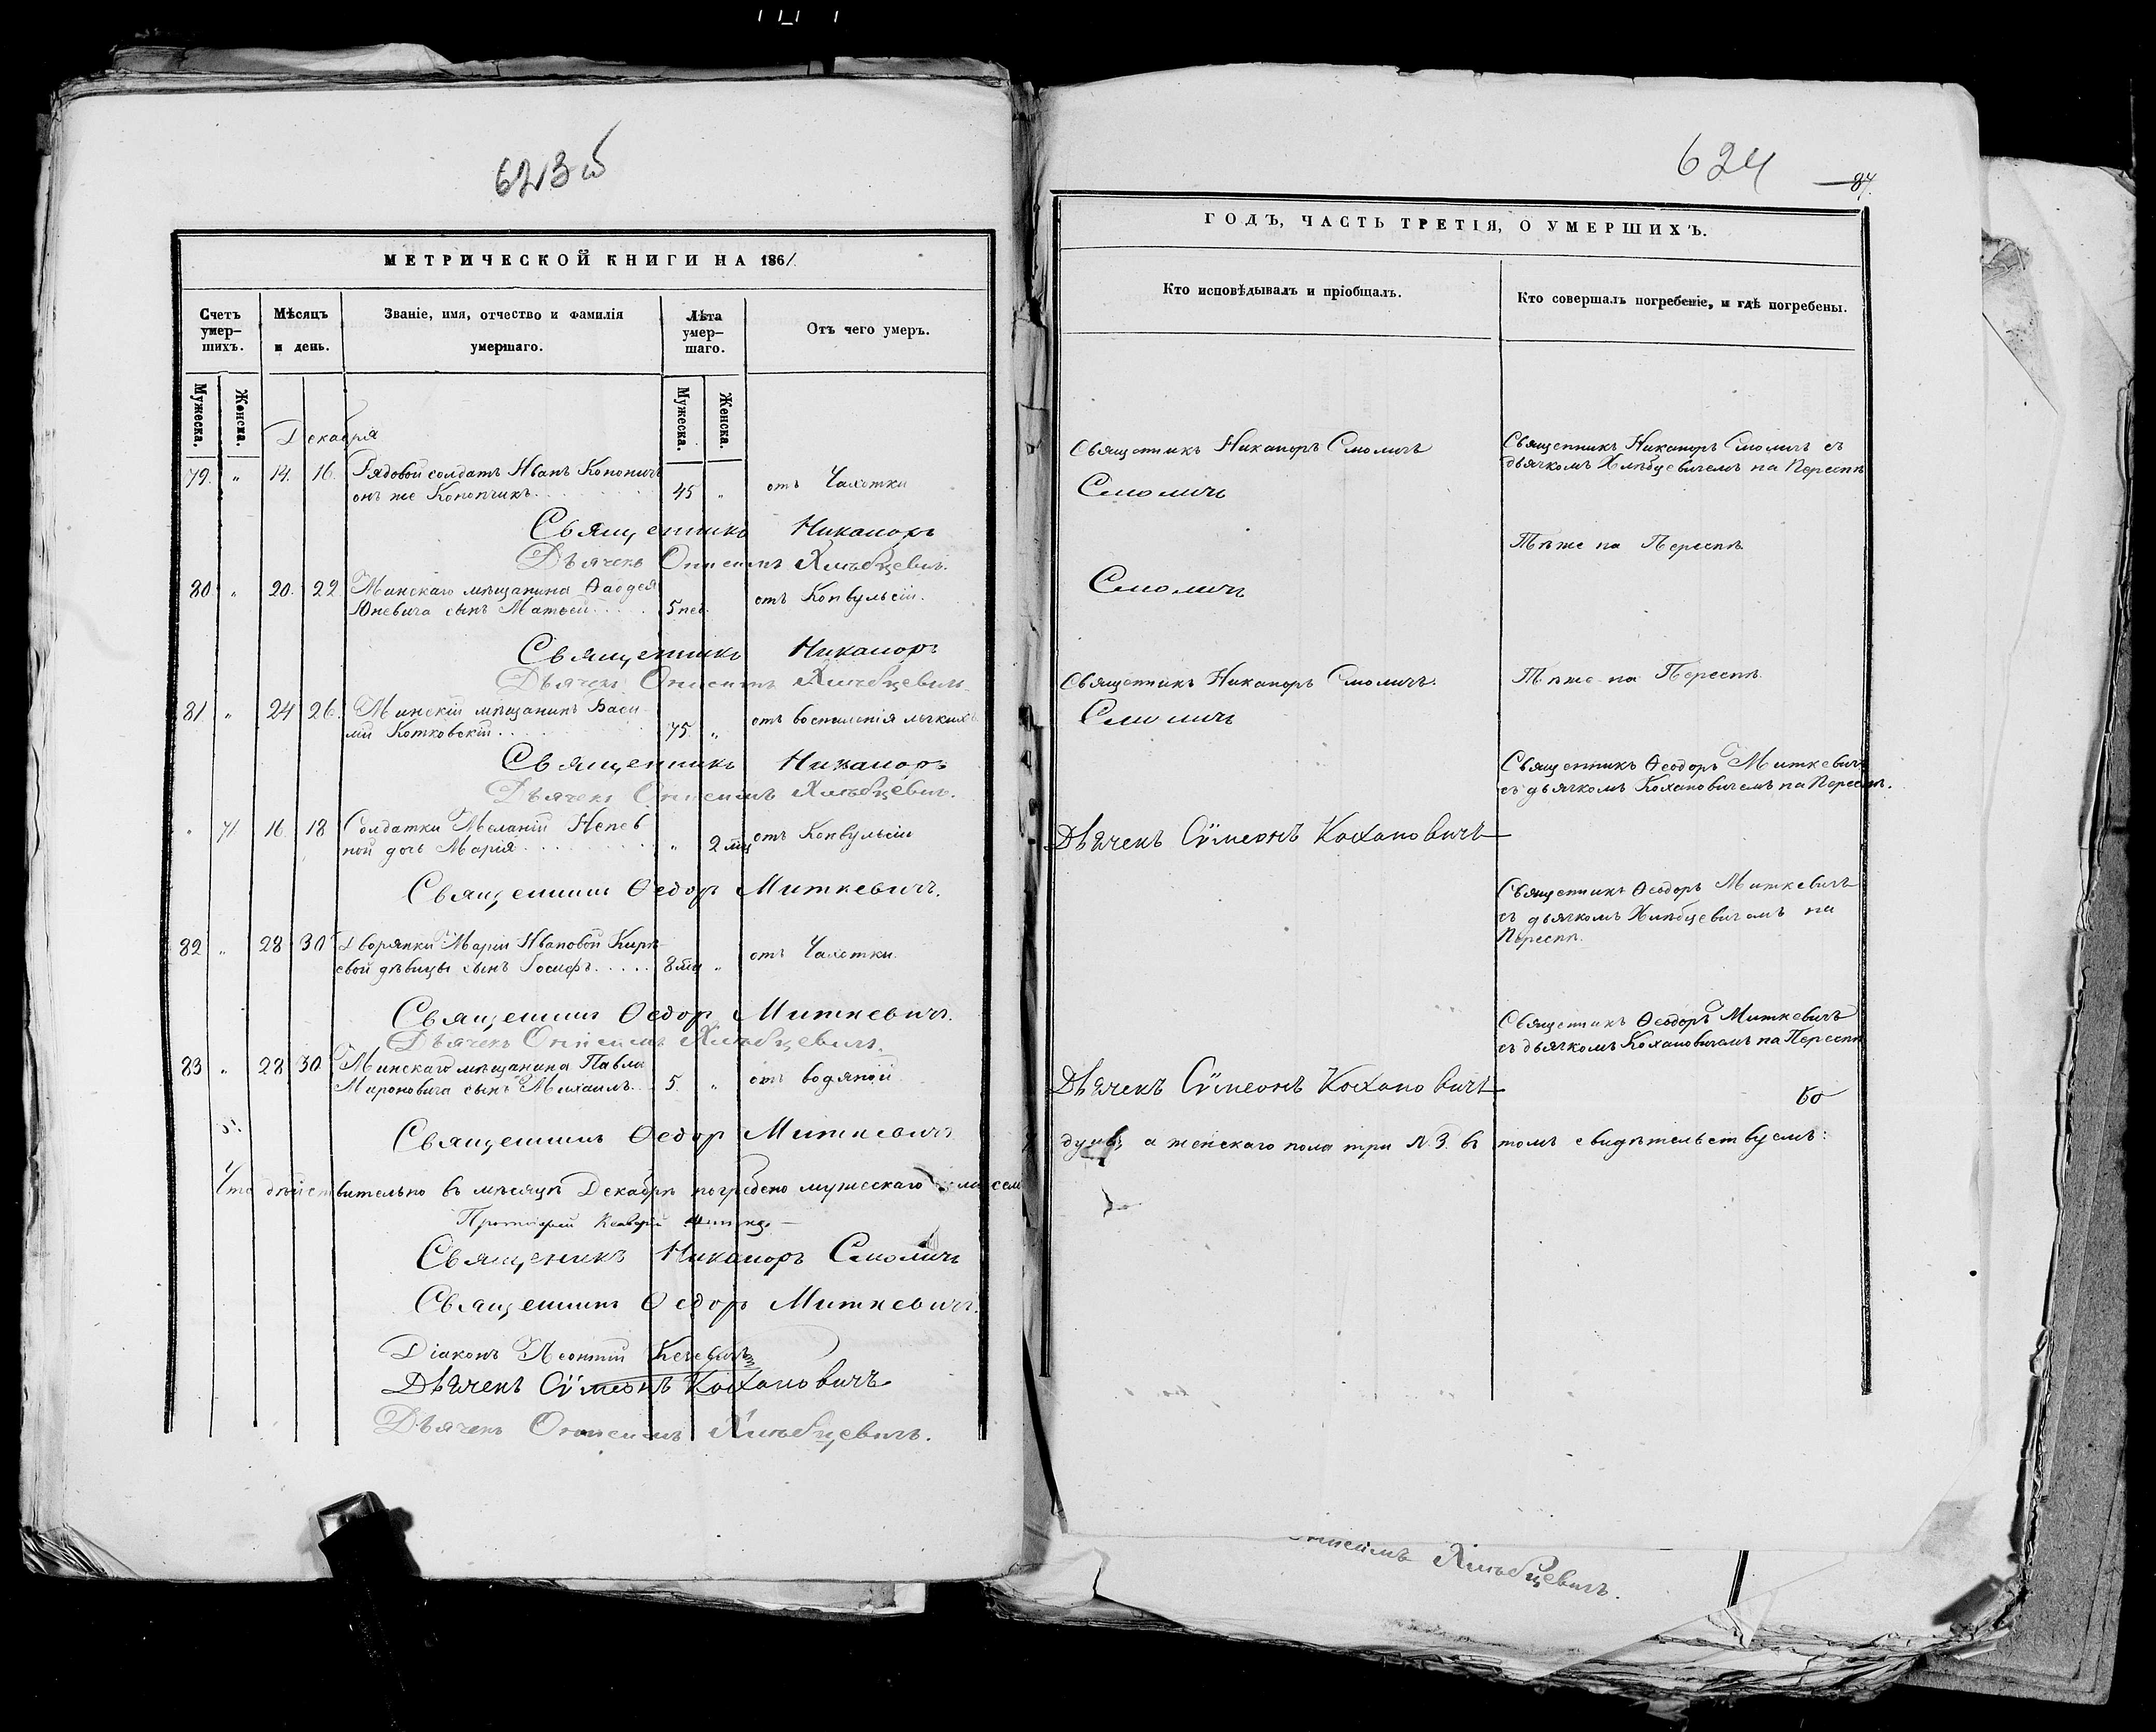 623б
МЕТРИЧЕСКОЙ КНИГИ НА 1861.
Счетъ умер-шихъ.
Мѣсяцъ и день.
Званіе, имя, отчество и фамилія умершаго.
Лѣта умер-шаго.
Отъ чего умеръ.
Мужеска.
Женска.
Мужеска.
Женска.
Декабря
79. " 14. 16. Рядовой солдатъ Иванъ Кононичъ
онъ же Конопчикъ. 45 " отъ Чахотки
Священникъ Никаноръ
Дьячекъ Онисимъ Хлѣбцевичъ.
80. " 20. 22. Минскаго мѣщанина Ѳаддея
Юневича сынъ Матѳей 5 нед. отъ Конвульсіи.
Священникъ Никаноръ
Дьячекъ Онисимъ Хлѣбцевичъ.
81 " 24 26. Минскій мѣщанинъ Васи
лій Котковскій. 75. " отъ воспаленія легкихъ
Священникъ Никаноръ
Дьячекъ Онисимъ Хлѣбцевичъ.
" 71. 16. 18 Солдатки Меланіи
ной дочь Марія " 2 мѣц отъ Конвульсіи
Священникъ Ѳедор Миткевичъ.
82 " 28 30 Дворянки Маріи Ивановой
евой дѣвицы сынъ Іосифъ 8 мѣц " отъ Чахотки.
Священникъ Ѳедор Миткевичъ.
Дьячекъ Онисимъ Хлѣбцевичъ.
83 " 28 30 Минскаго мѣщанина Павла
Мироновича сынъ Михаилъ. 5. " отъ водяной.
Священникъ Ѳедор Миткевичъ
Что дѣйствительно въ мѣсяцѣ Декабрѣ погребено мужескаго пола сем
Протоіерей
Священикъ Никаноръ Смоличъ
Священникъ Ѳедор Миткевичъ.
Діаконъ Леонтій
Дьячекъ Сѵмеонъ Кохановичъ
Дьячекъ Онисимъ Хлѣбцевичъ.
624
87.
ГОДЪ, ЧАСТЬ ТРЕТІЯ, О УМЕРШИХЪ.
Кто исповѣдывалъ и пріобщалъ.
Кто совершалъ погребеніе, и гдѣ погребены.
Священникъ Никаноръ Смоличъ
Священникъ Никаноръ Смоличъ съ
дьячкомъ Хлѣбцевичемъ на Переспѣ
Смоличъ
Тѣже на Переспѣ
Смоличъ
Священникъ Никаноръ Смоличъ.
Тѣже на Переспѣ
Смоличъ
Священникъ Ѳеодоръ Миткевичъ
съ дьячкомъ Кохановичемъ на Переспѣ.
Дьячекъ Сѵмеонъ Кохановичъ
Священникъ Ѳеодоръ Миткевичъ
съ дьячкомъ Хлѣбцевичемъ на
Переспѣ.
Священникъ Ѳеодоръ Миткевичъ
съ дьячкомъ Кохановичемъ на Переспѣ
Дьячекъ Сѵмеонъ Кохановичъ
душъ, а женскаго пола три N. 3. въ томъ свидѣтельствуемъ:
Онисимъ Хлѣбцевичъ.